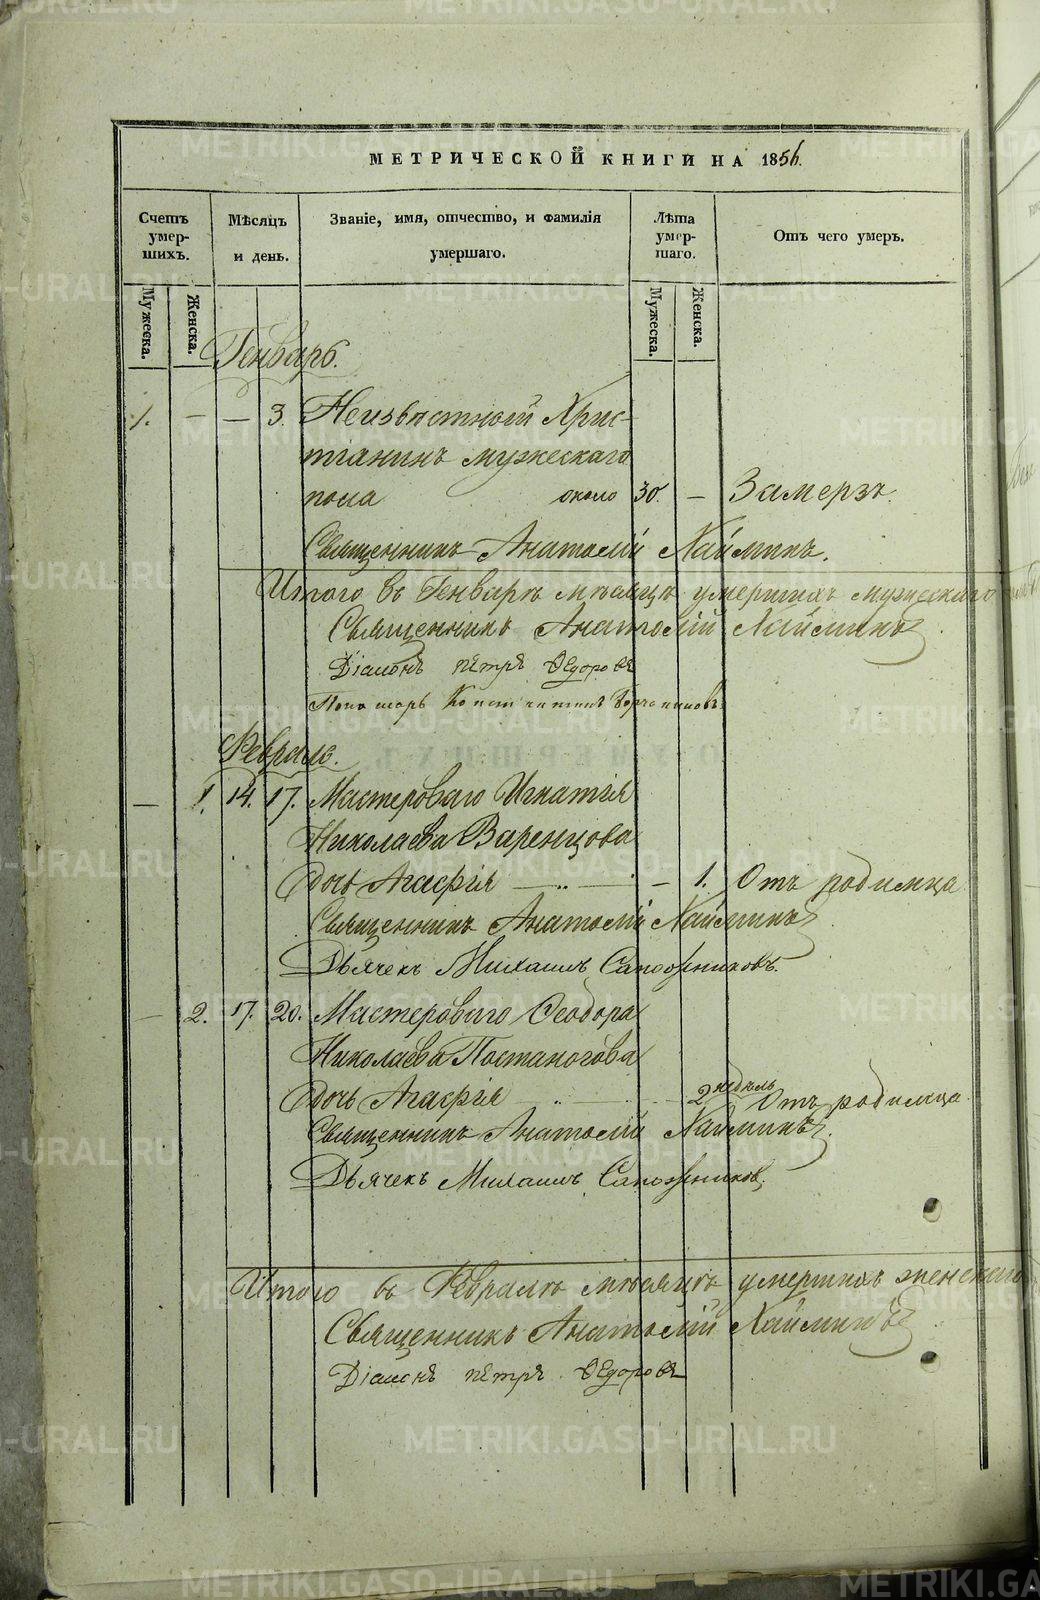 МЕТРИЧЕСКОЙ КНИГИ НА 1856.
Счетъ умер-шихъ.
Мѣсяцъ и день.
Званіе, имя, отчество, и фамилія умершаго.
Лѣта умер-шаго.
Отъ чего умеръ.
Мужеска.
Женска.
Мужеска.
Женска.
Генварь.
1. — — 3. Неизвѣстный Хрис-
тіанинъ мужескаго
пола около 30. — Замерзъ.
Священникъ Анатолій Хайминъ.
Итого въ Генварѣ мѣсяцѣ умершихъ мужескаго
Священникъ Анатолій Хайминъ
Діаконъ Петръ Ѳедоровъ
Пономарь Константинъ
Февраль.
— 1. 14. 17. Мастероваго Игнатія
Николаева Варенцова
дочь Агафія — 1. Отъ родимца
Священникъ Анатолій Хайминъ
Дьячекъ Михаилъ Сапожниковъ.
— 2. 17. 20. Мастероваго Ѳеодора
Николаева Постаногова
дочь Агафія — 2 недѣль Отъ родимца
Священникъ Анатолій Хайминъ.
Дьячекъ Михаилъ Сапожниковъ.
Итого въ Февралѣ мѣсяцѣ умершихъ женскаго
Священникъ Анатолій Хайминъ
Діаконъ Петръ Ѳедоровъ
METRIKI.GASO-URAL.RU